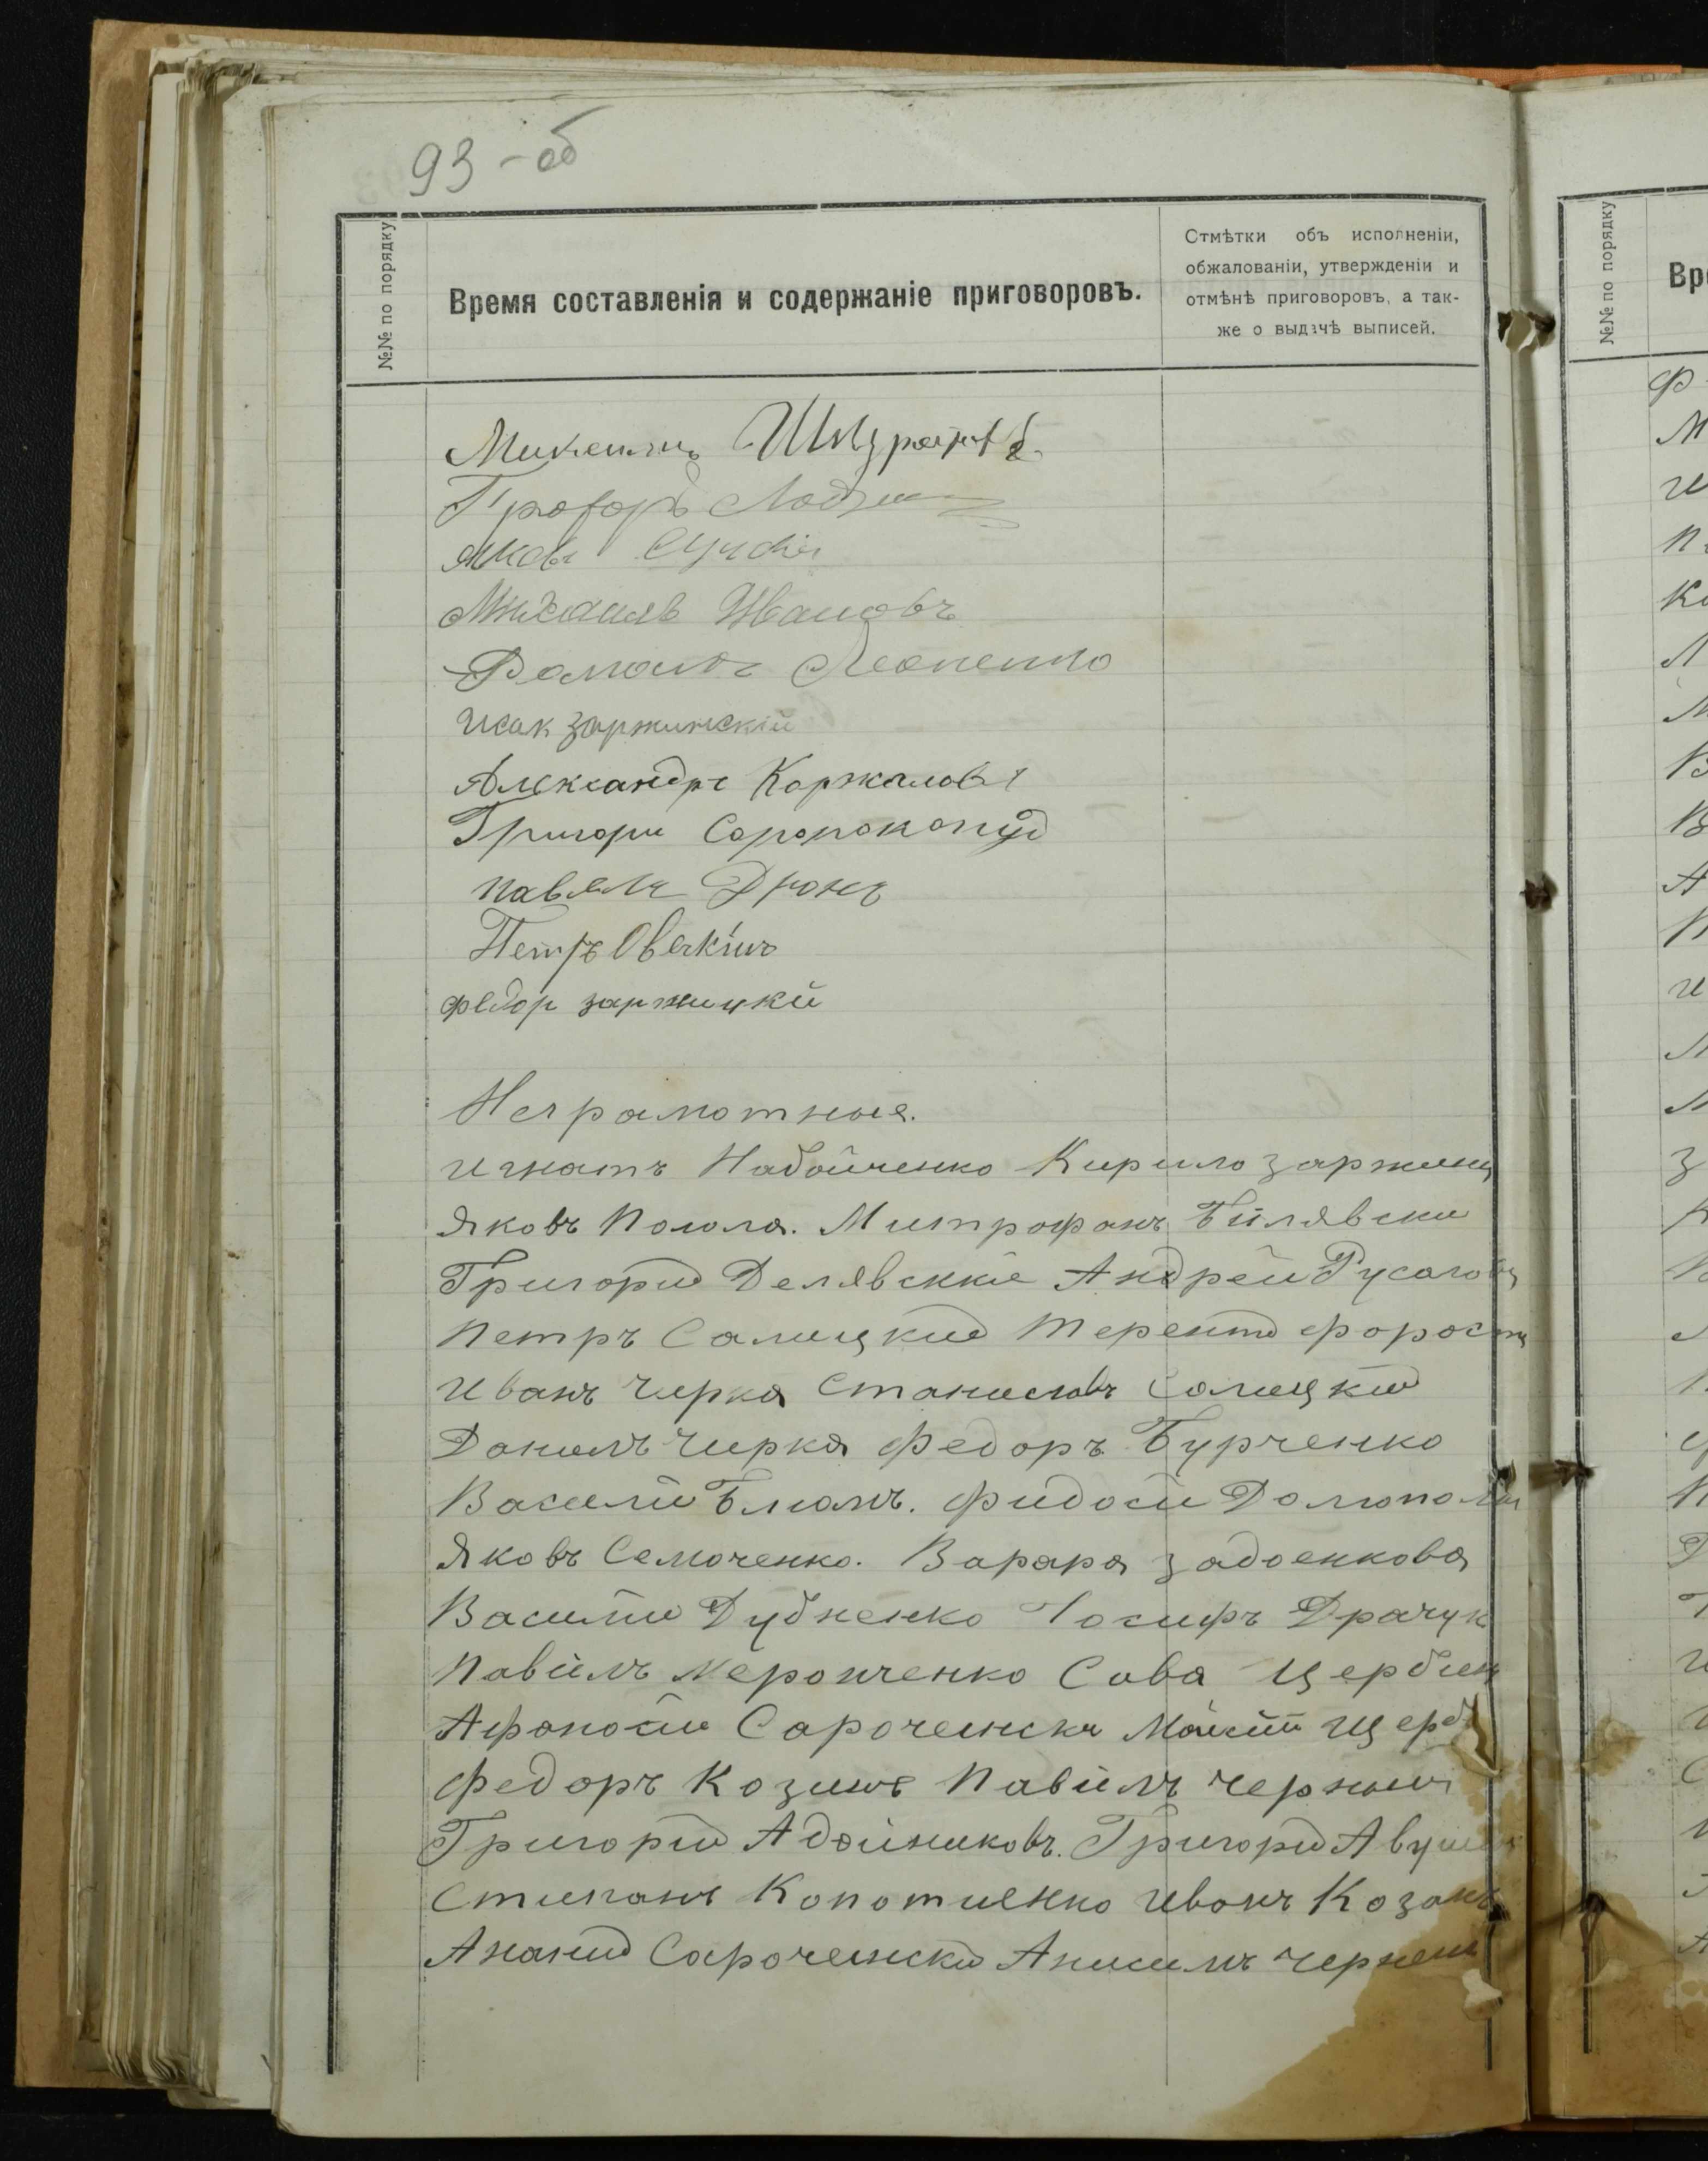 93-об
№№ по порядку
Время составленія и содержаніе приговоровъ.
Отмѣтки объ исполненіи,
обжалованіи, утвержденіи и
отмѣнѣ приговоровъ, а так-
же о выдачѣ выписей.
Яковъ
Михаилъ Ивановъ
Романъ Леоненко
Исак Заржинскій
Александръ Коржаловъ
Григори Соропокопуд
Павелъ Дронъ
Петръ Овечкінъ
федор заржицкй
Неграмотные.
Игнатъ Набойченко Кирило Заржиц
Яковъ Погола. Митрофанъ Билявски
Григорій Делявскіе Андрей Русаговъ
Петръ Салицкий Терентій Форост
Иванъ Чирка Станиславъ Салицкій
Данилъ Чирка Федоръ Бурченко
Василй Блюмъ. Фидосй
Яковъ Семоченко. Варара Задоенкова
Василй Дубненко Іосифъ Драчук
Павилъ Меронченко Сава Щербин
Афонасй Сароченски Щерб
Федоръ Козинъ Павилъ Черный
Григорій Адойниковъ. Григорій
Стипанъ Копотиенко Иванъ Козакъ
Ананій Сароченски Анисимъ Чернен
№№ по порядку
Вре